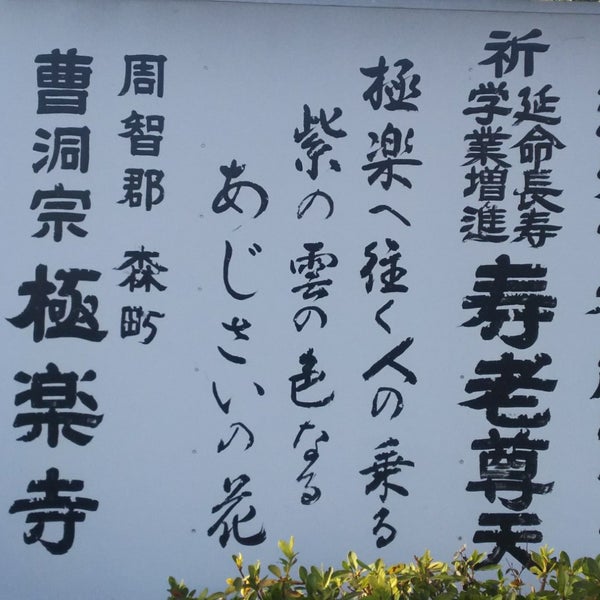 祈
延命長寿
学業増進
寿老尊天
極楽へ往く人の乗る
紫の雲の色なる
あじさいの花
周智郡 森町
曹洞宗 極楽寺